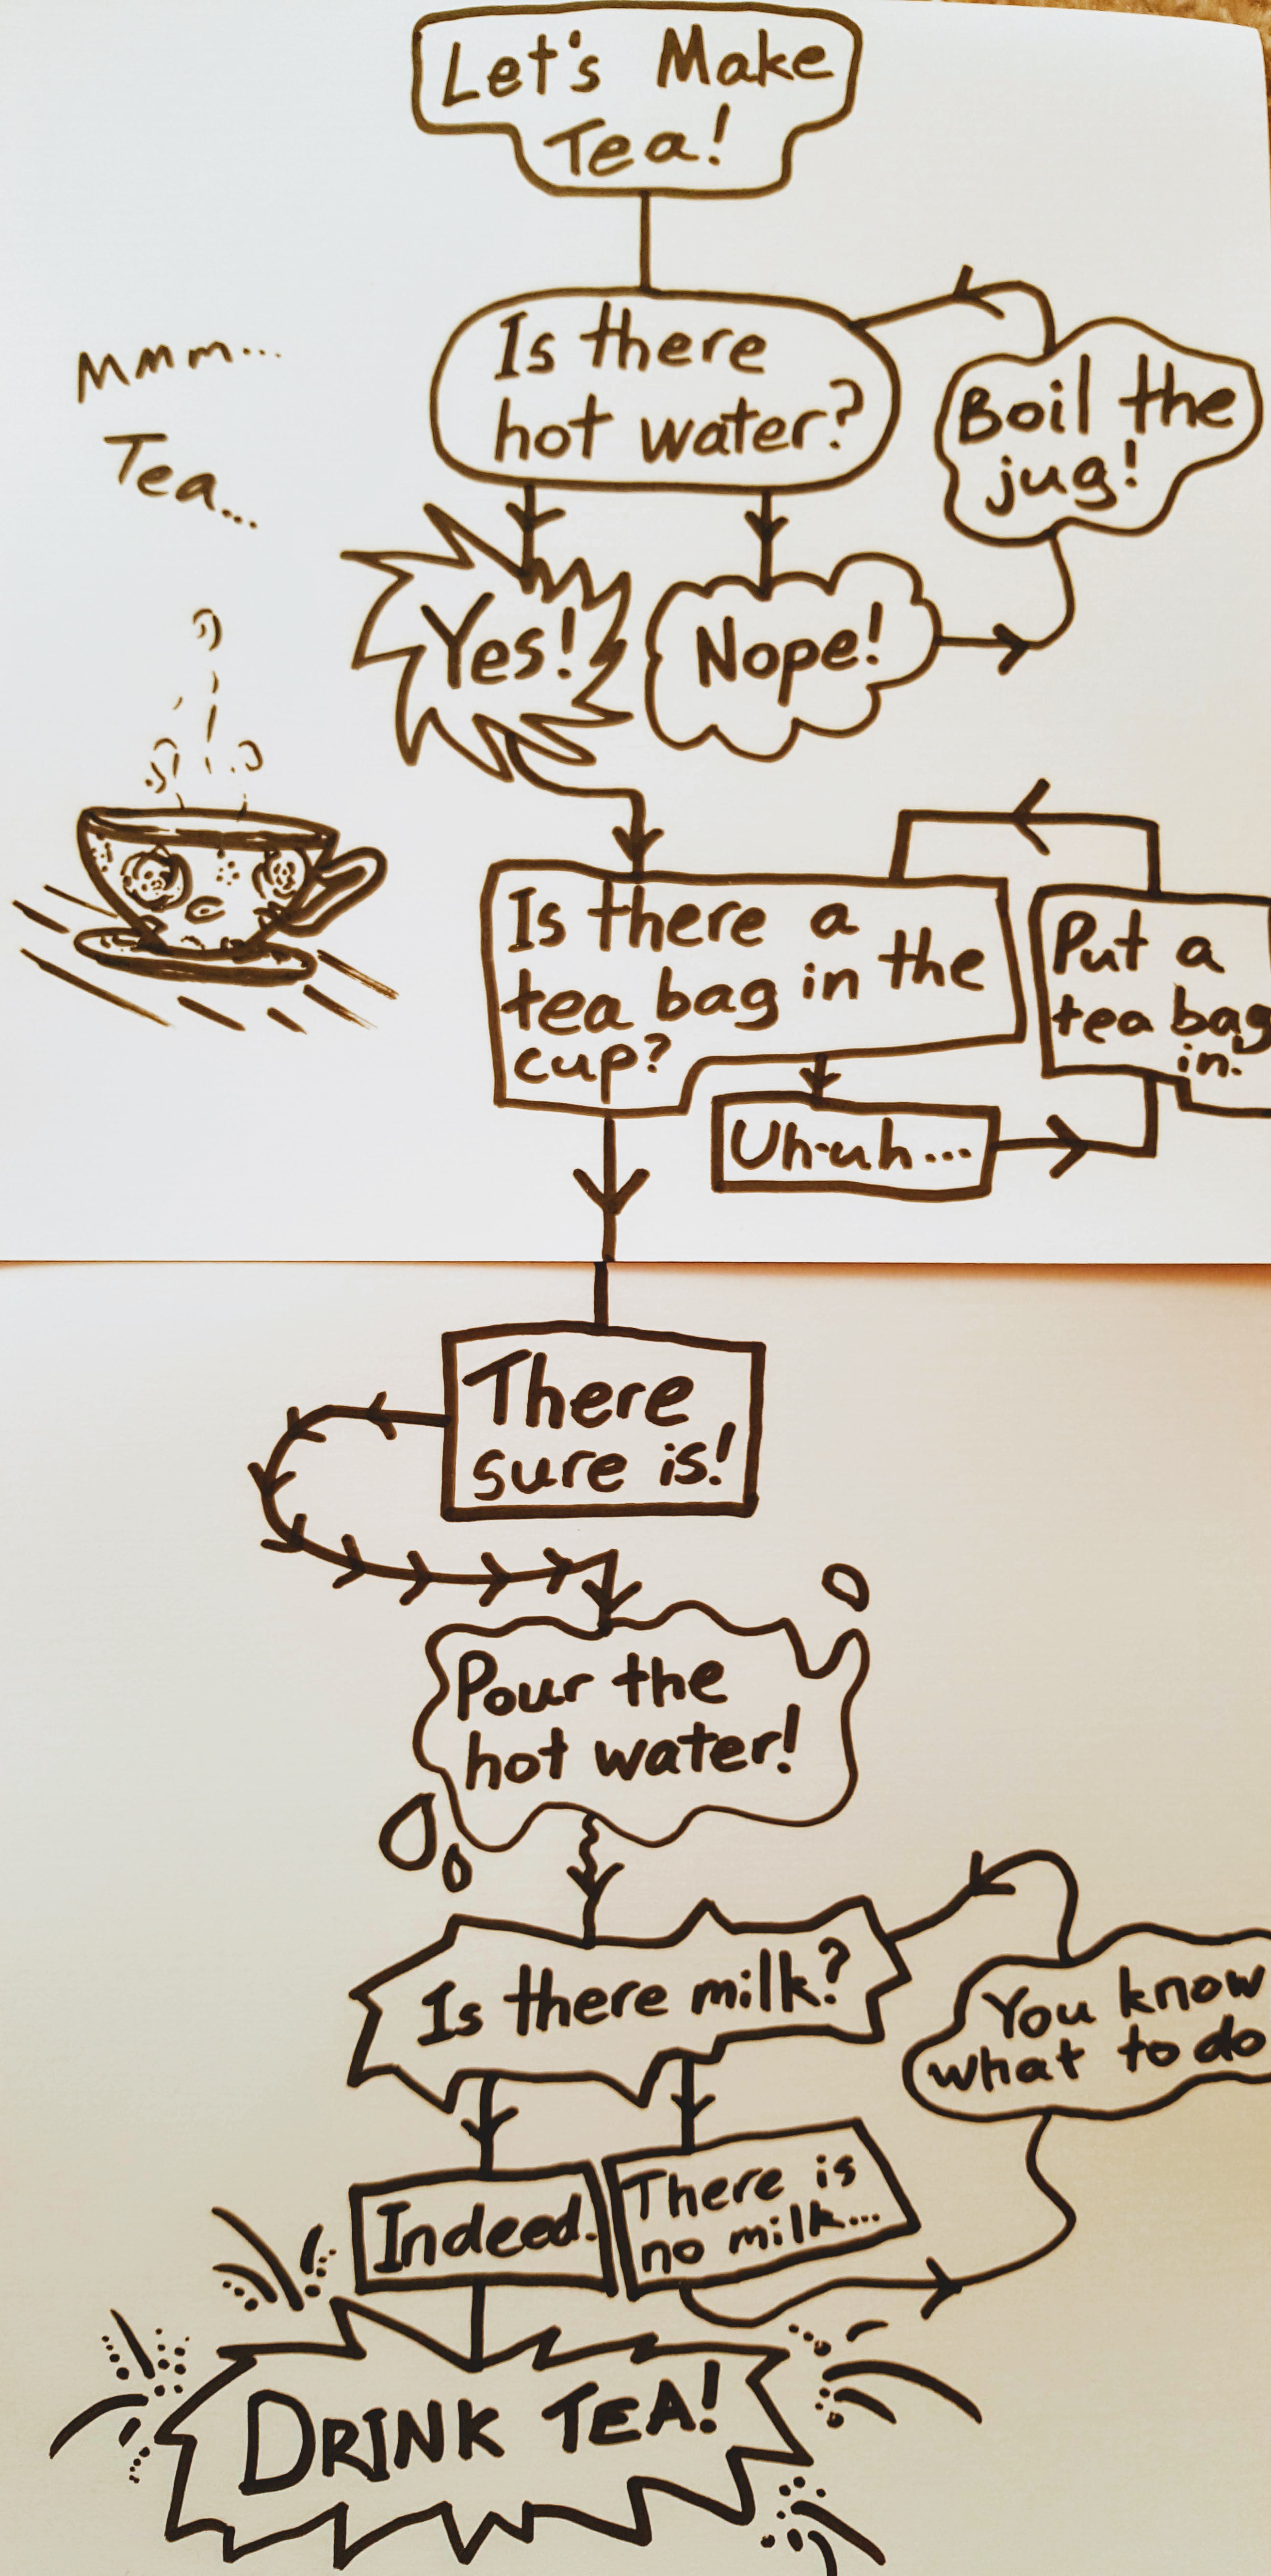 Let's Make
Tea!
Is there
hot water?
Boil the
jug!
Mmm...
Tea...
Yes!
Nope!
Is there a
tea bag in the
cup?
Put a
tea bag
in.
Uh-uh...
There
sure is!
Pour the
hot water!
Is there milk?
You know
what to do
Indeed.
There is
no milk...
DRINK TEA!